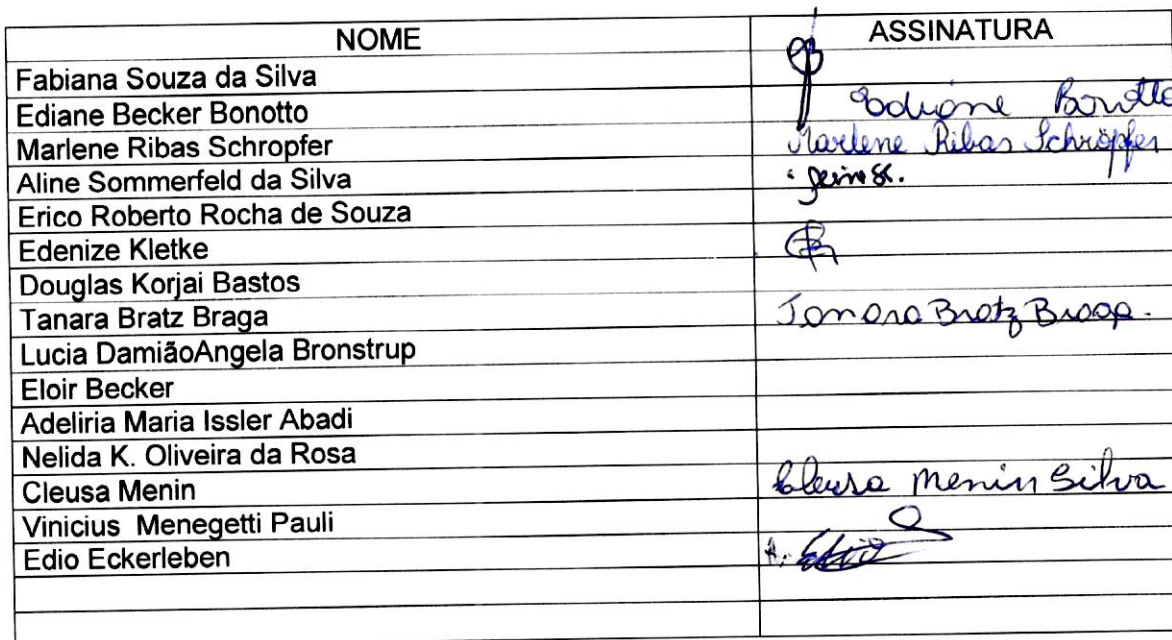 NOME ASSINATURA
Fabiana Souza da Silva
Ediane Becker Bonotto Ediane Bonotto
Marlene Ribas Schropfer Marlene Ribas Schröpfer
Aline Sommerfeld da Silva
Erico Roberto Rocha de Souza
Edenize Kletke
Douglas Korjai Bastos
Tanara Bratz Braga Tanara Bratz Braga.
Lucia DamiãoAngela Bronstrup
Eloir Becker
Adeliria Maria Issler Abadi
Nelida K. Oliveira da Rosa
Cleusa Menin Cleusa Menin Silva
Vinicius Menegetti Pauli
Edio Eckerleben